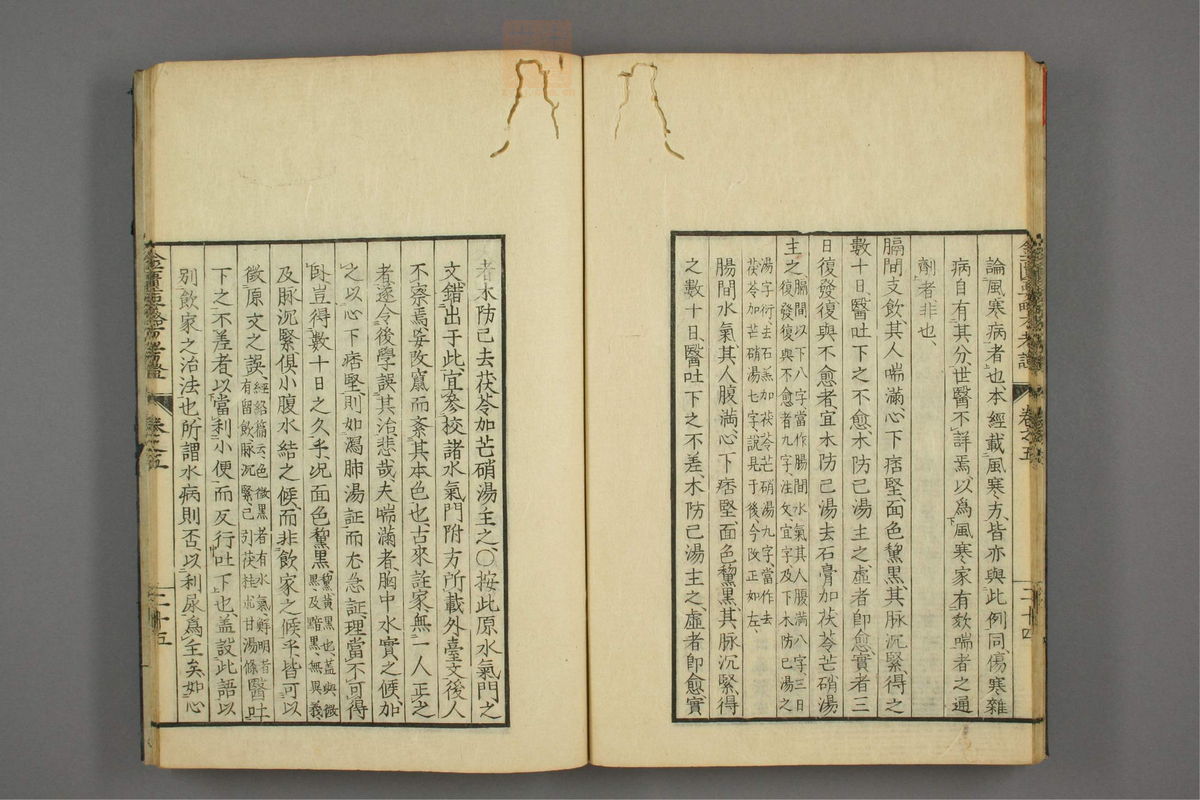 論風寒病者也本經載風寒方皆亦與此例同傷寒雜
病自有其分世醫不詳焉以爲風寒家有欬喘者之通
劑者非也
膈間支飲其人喘滿心下痞堅面色黧黑其脉沉緊得之
數十日醫吐下之不愈木防己湯主之虛者即愈實者三
日復發復與不愈者宜木防己湯去石膏加茯苓芒硝湯
主之
膈間以下八字當作腸間水氣其人腹滿八字三日
復發復與不愈者九字注文宜字及下木防己湯之
湯字衍去石羔加茯苓芒硝湯九字當作去
茯苓加芒硝湯七字說見于後今改正如左
腸間水氣其人腹滿心下痞堅面色黧黑其脉沉緊得
之數十日醫吐下之不差木防己湯主之虛者即愈實
卷之五
二十四
者木防己去茯苓加芒硝湯主之○按此原水氣門之
文錯出于此宜參校諸水氣門附方所載外臺文後人
不察焉妄改竄而紊其本色也古來註家無一人正之
者遂令後學誤其治悲哉夫喘滿者胸中水實之候加
之以心下痞堅則如瀉肺湯証而尤急証理當不可得
臥豈得數十日之久乎況面色黧黑
黧黄黑也蓋與微
黑及黯黑無異義
及脉沉緊俱小腹水結之候而非飲家之候乎皆可以
徵原文之誤
經絡篇云色微黑者有水氣鮮明者
有留飲脉沉緊已引茯桂朮甘湯條
醫吐
下之不差者以當利小便而反行吐下也蓋設此語以
別飲家之治法也所謂水病則否以利尿爲主矣如心
金匱要略方考證
卷之五
二十五